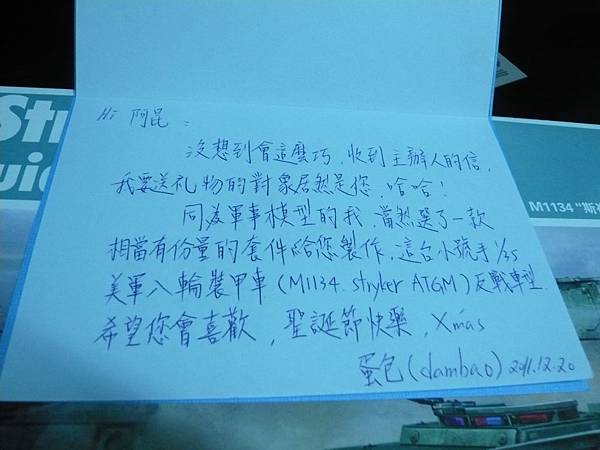 Hi 阿昆:
沒想到會這麼巧,收到主辦人的信,
我要送礼物的對象居然是您,哈哈!
同為軍事模型的我,當然選了一款
相當有份量的套件給您製作,這台小號手1/35
美軍八輪裝甲車(M1134. stryker ATGM)反戰車型
希望您會喜歡,聖誕節快樂,Xmas
蛋包(dambao) 2011.12.20
M1134 "斯